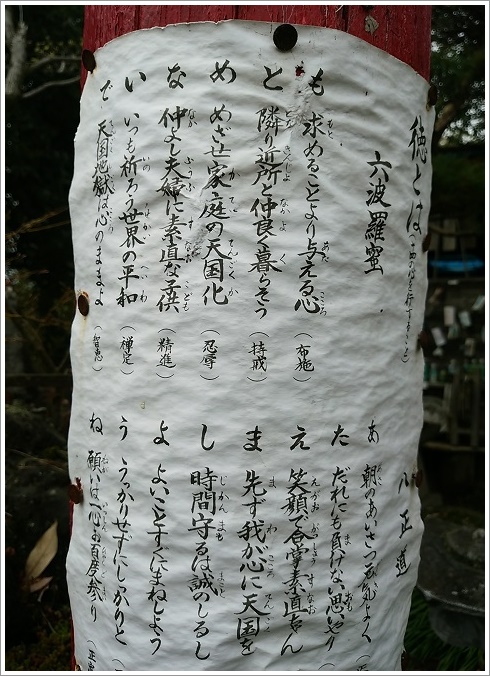 徳とは
六波羅密
も 求めることより与える心 (布施)
と 隣り近所と仲良く暮らそう (持戒)
め めざせ家庭の天国化 (忍辱)
な 仲よし夫婦に素直な子供 (精進)
い いつも祈ろう世界の平和 (禅定)
で 天国地獄は心のままよ (智恵)
八正道
あ 朝のあいさつ元気よく (正
た だれにも負けない思いやり
え 笑顔で合掌素直さん
ま 先ず我が心に天国を
し 時間守るは誠のしるし
よ よいことすぐにまねしよう
う うっかりせずにしっかりと
ね 願いは一心お百度参り (正